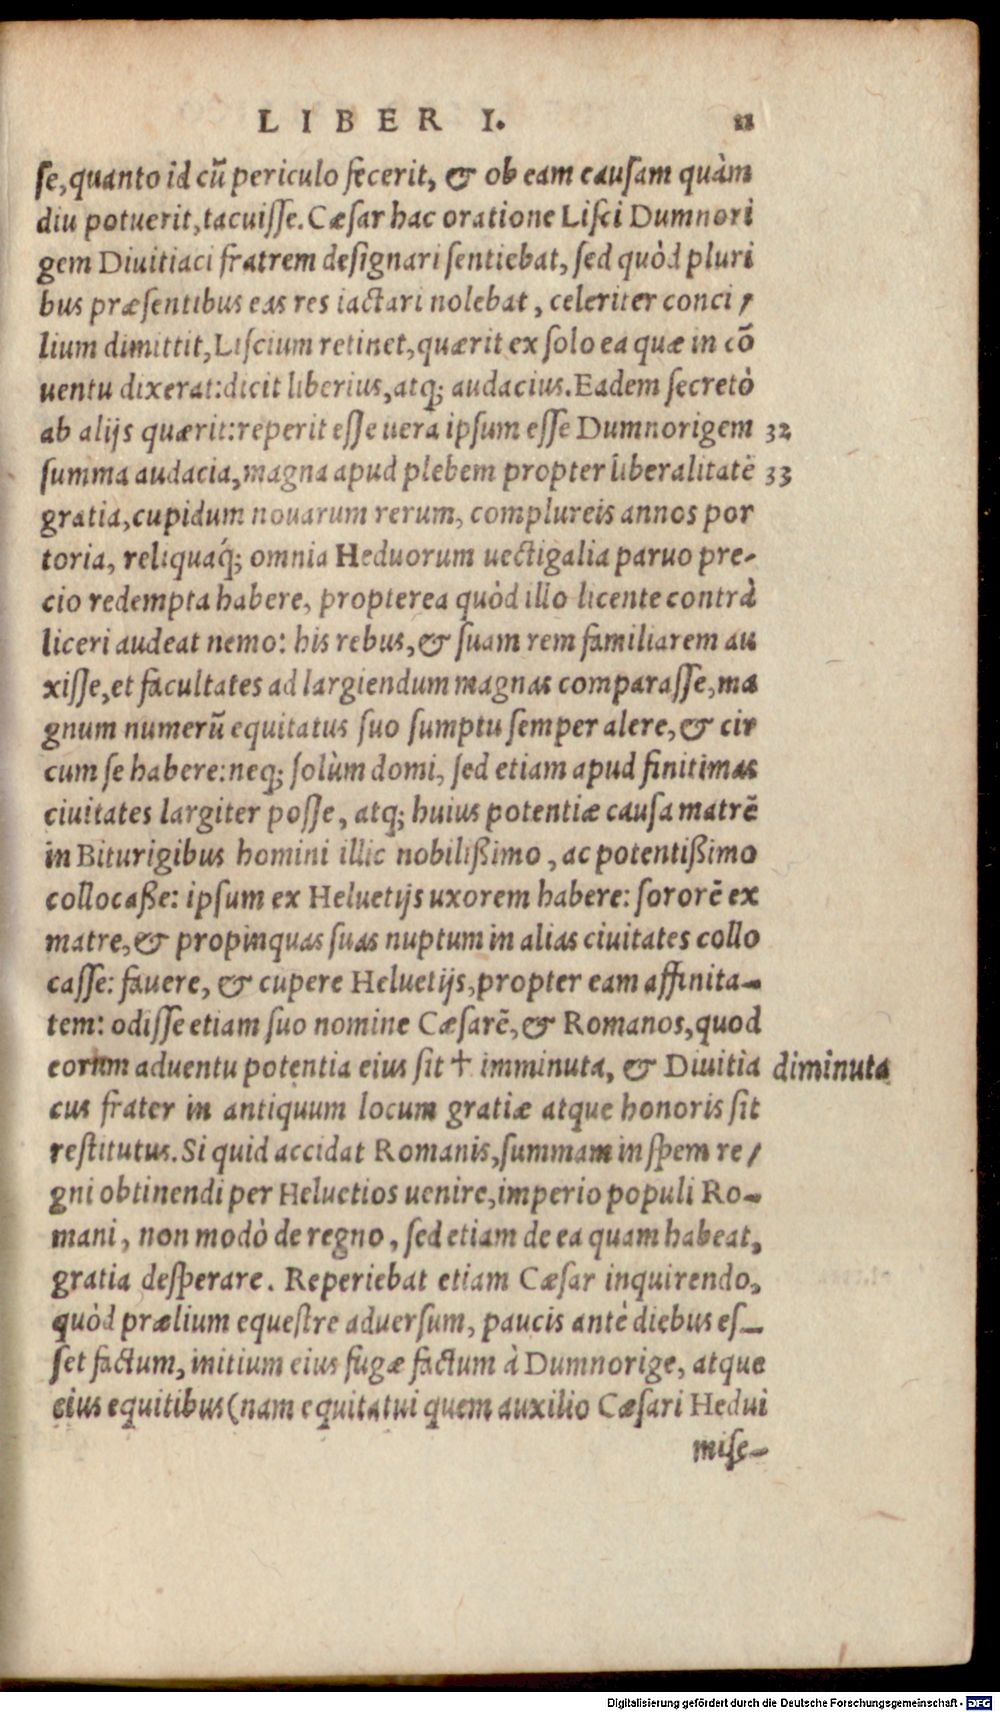 LIBER I. 11
se, quanto id cũ periculo fecerit, & ob eam causam quàm
diu potuerit, tacuisse. Cæsar hac oratione Lisci Dumnori
gem Diuitiaci fratrem designari sentiebat, sed quòd pluri
bus præsentibus eas res iactari nolebat, celeriter conci/
lium dimittit, Liscium retinet, quærit ex solo ea quæ in cõ
uentu dixerat: dicit liberius, atq; audacius. Eadem secretò
ab alijs quærit: reperit esse uera ipsum esse Dumnorigem 32
summa audacia, magna apud plebem propter liberalitatẽ 33
gratia, cupidum nouarum rerum, complureis annos por
toria, reliquaq́; omnia Heduorum uectigalia paruo pre-
cio redempta habere, propterea quòd illo licente contrà
liceri audeat nemo: his rebus, & suam rem familiarem au
xisse, et facultates ad largiendum magnas comparasse, ma
gnum numerũ equitatus suo sumptu semper alere, & cir
cum se habere: neq; solùm domi, sed etiam apud finitimas
ciuitates largiter posse, atq; huius potentiæ causa matrẽ
in Biturigibus homini illic nobilißimo, ac potentißimo
collocaße: ipsum ex Heluetijs uxorem habere: sororẽ ex
matre, & propinquas suas nuptum in alias ciuitates collo
casse: fauere, & cupere Heluetijs, propter eam affinita-
tem: odisse etiam suo nomine Cæsarẽ, & Romanos, quod
eorum aduentu potentia eius sit † imminuta, & Diuitia diminuta
cus frater in antiquum locum gratiæ atque honoris sit
restitutus. Si quid accidat Romanis, summam in spem re/
gni obtinendi per Heluetios uenire, imperio populi Ro-
mani, non modò de regno, sed etiam de ea quam habeat,
gratia desperare. Reperiebat etiam Cæsar inquirendo,
quòd prælium equestre aduersum, paucis antè diebus es-
set factum, initium eius fugæ factum à Dumnorige, atque
eius equitibus (nam equitatui quem auxilio Cæsari Hedui
mise-
Digitalisierung gefördert durch die Deutsche Forschungsgemeinschaft - DFG